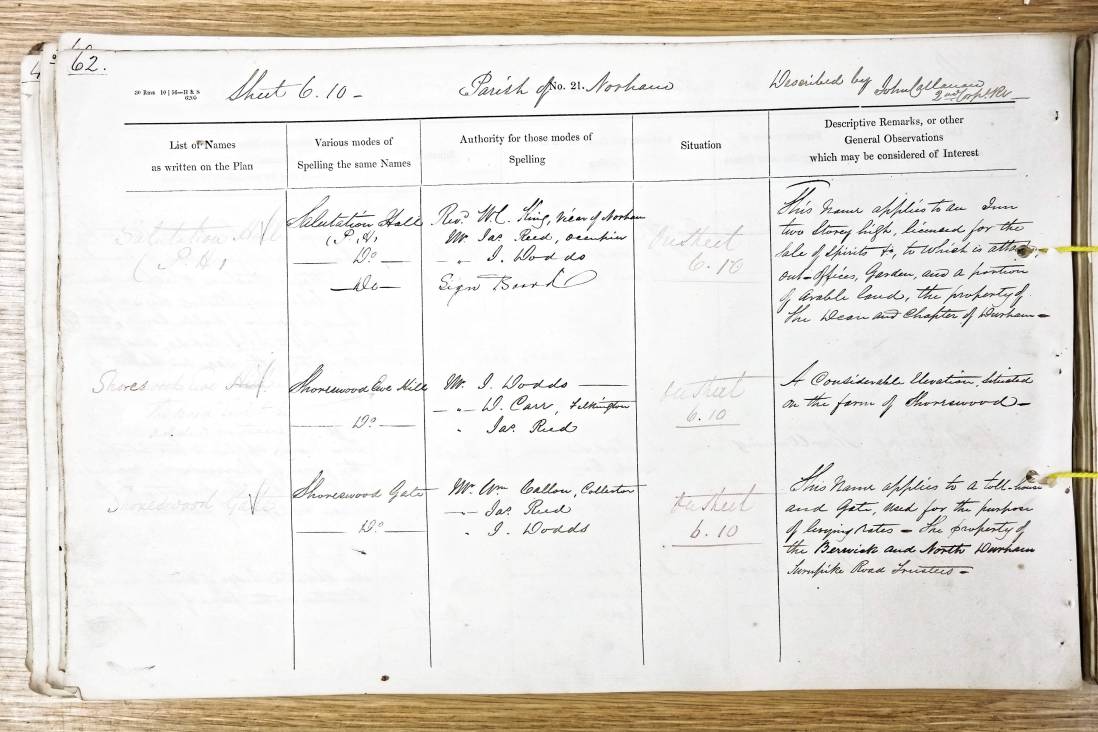 62.
Sheet 6.10 - Parish of No. 21. Norham Described by John Callanan
2nd Corpl. RE
List of Names
as written on the Plan
Various modes of
Spelling the same Names
Authority for those modes of
Spelling
Situation
Descriptive Remarks, or other
General Observations
which may be considered of Interest
Salutation Hall
(P.H)
Salutation Hall
(P.H)
Do
Do
Revd. W.C. King, Vicar of Norham
Mr. Jas. Reed, occupier
" I. Dodds
Sign Board
On sheet
6.10
This Name applies to an Inn
two Storey high, licensed for the
Sale of Spirits &c, to which is attachd,
out-offices, Garden, and a portion
of Arable land, the property of
the Dean and Chapter of Durham -
Shoreswood Ewe Hill
Shoreswood Ewe Hill
Do
Mr. I. Dodds
" D. Carr, Felkington
" Jas. Reed
On sheet
6.10
A Considerable Elevation, Situated
on the farm of Shoreswood -
Shoreswood Gate
Shoreswood Gate
Do
Mr. Wm. Callon, Collector
Jas. Reed
" I. Dodds
On sheet
6.10
This Name applies to a toll-house
and Gate, used for the purpose
of levying Rates - The property of
the Berwick and North Durham
Turnpike Road Trustees -